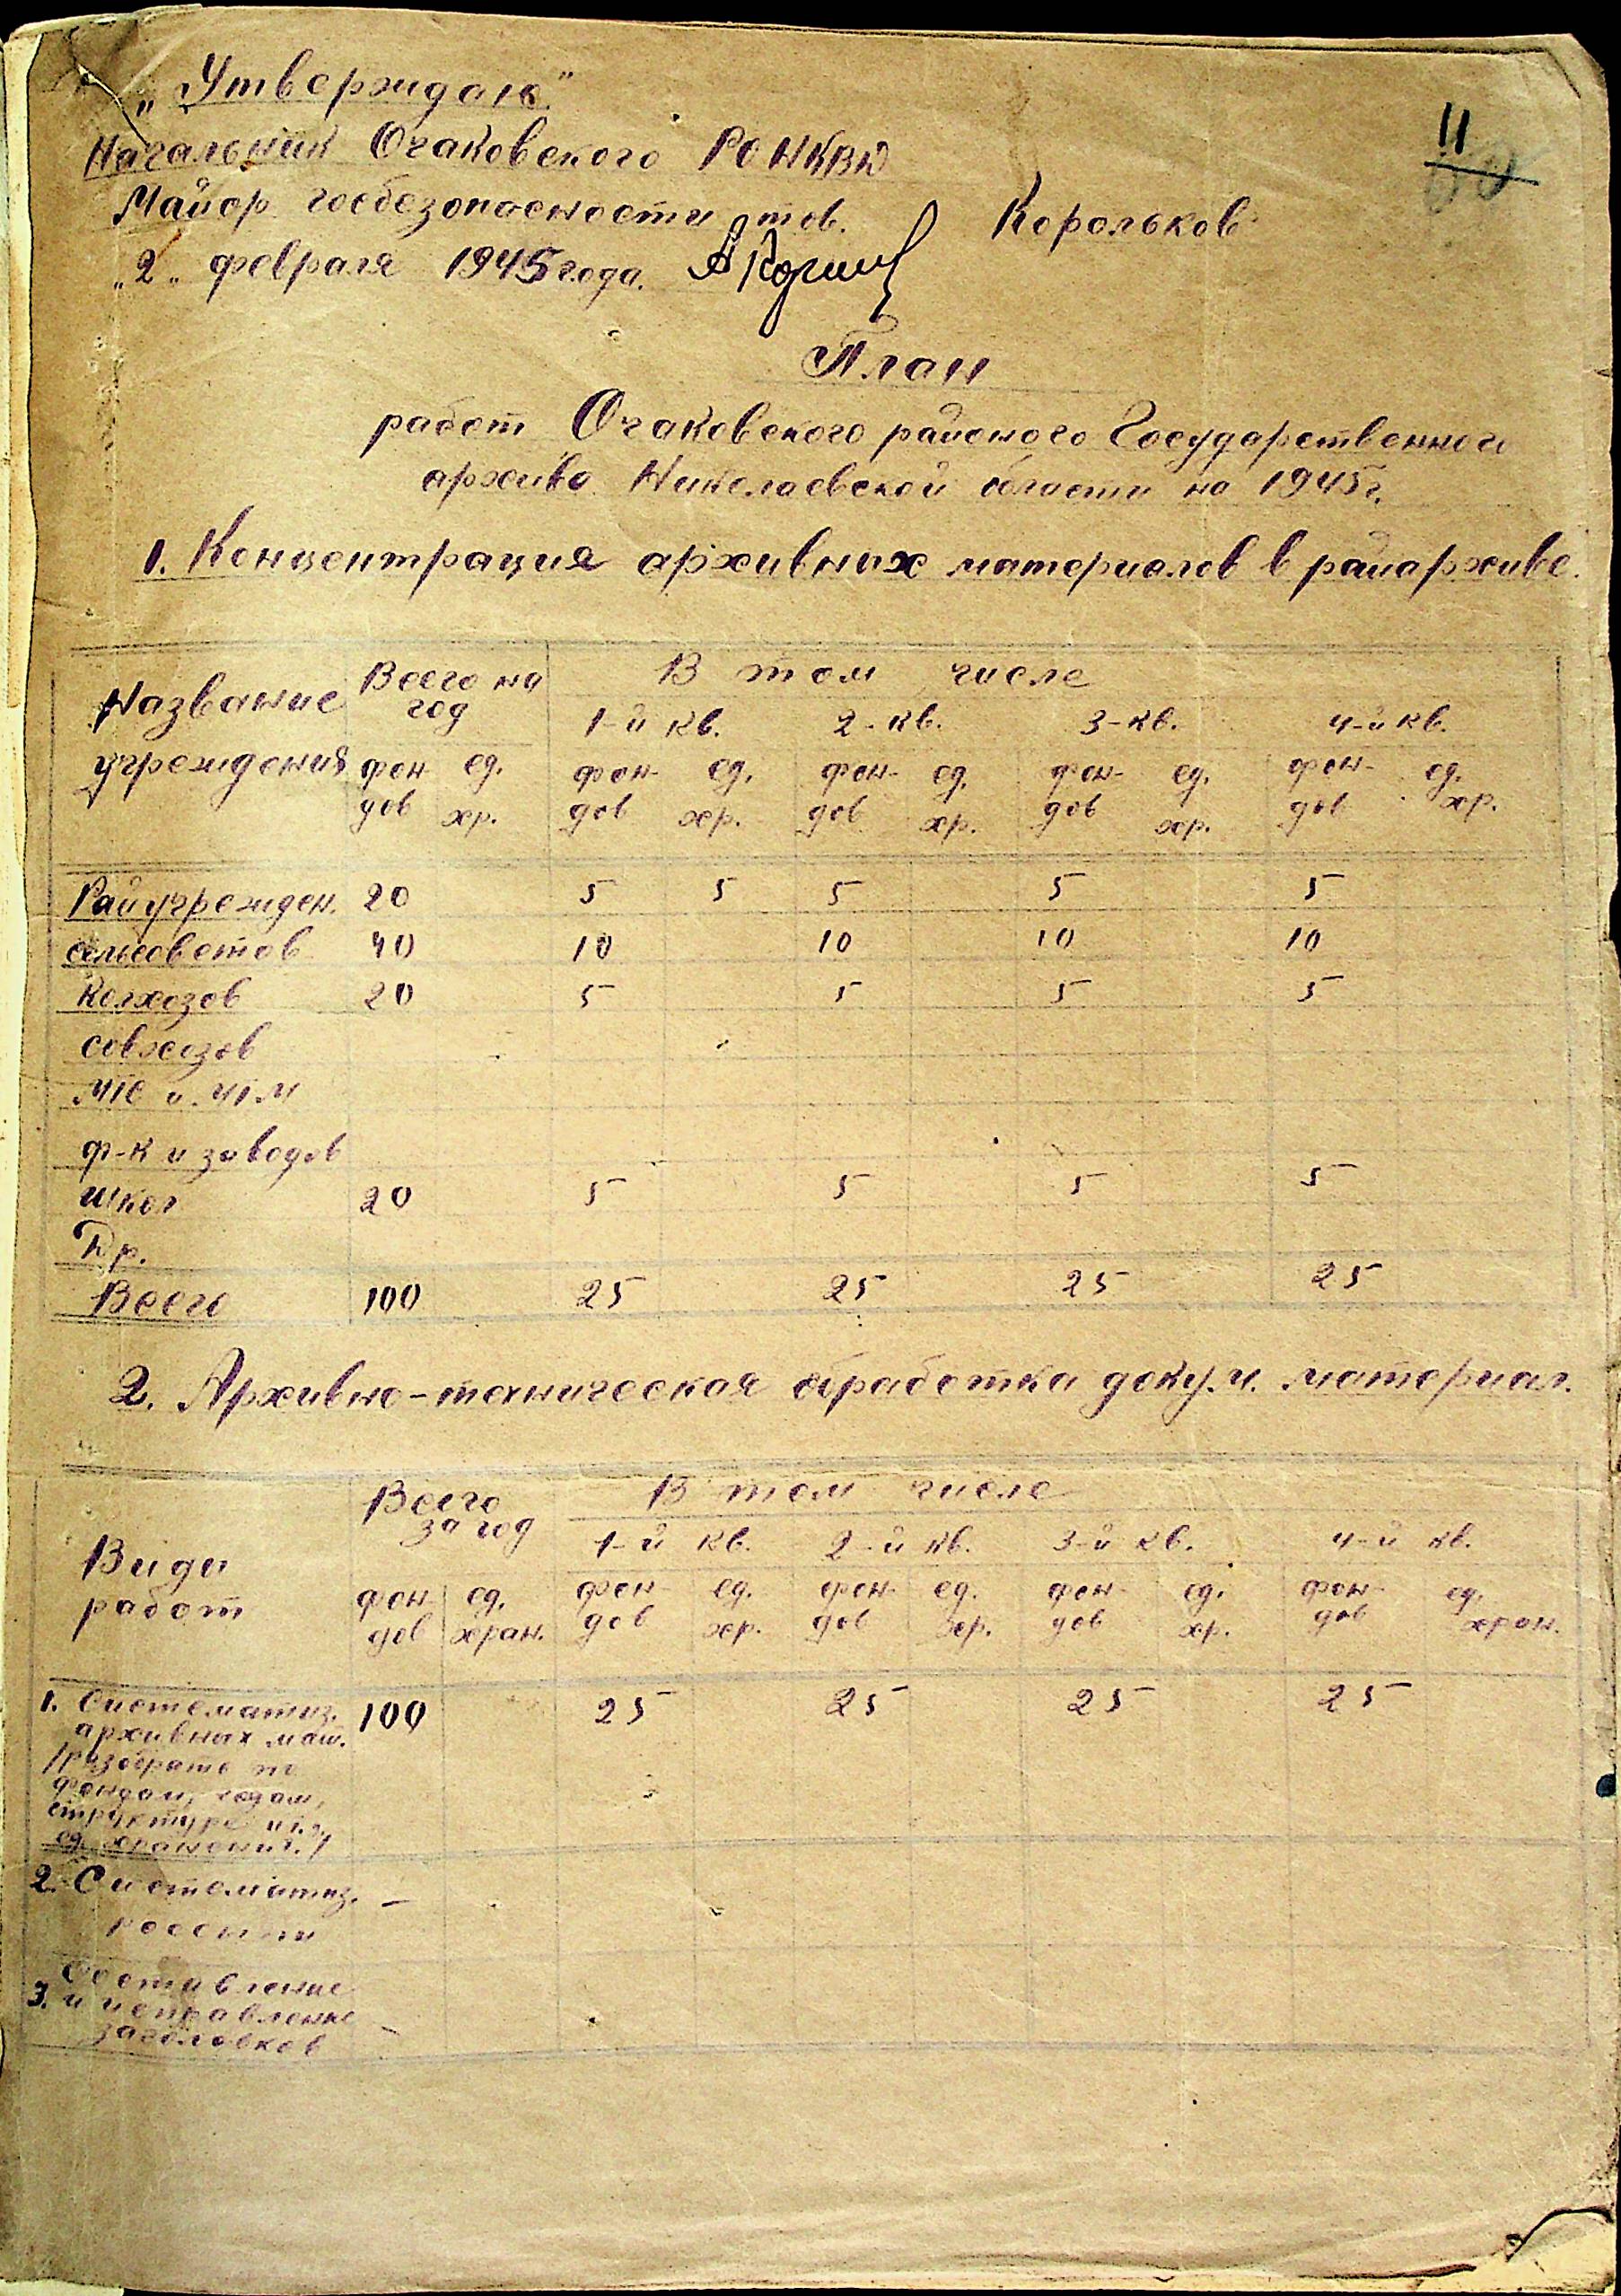 „Утверждаю"
Начальник Очаковского РО НКВД
Майор госбезопасности тов. Корольков
„2„ февраля 1945 года.
11
План
работ Очаковского районого Государственного
архива Николаевской области на 1945 г.
1. Концентрация архивных материалов в райархиве.
Название учреждения Всего на год В том числе
1-й кв. 2-кв. 3-кв. 4-й кв.
фон- ед. фон- ед. фон- ед. фон- ед. фон- ед.
дов хр. дов хр. дов хр. дов хр. дов хр.
Райучрежден. 20 5 5 5 5 5
сельсоветов 40 10 10 10 10
Колхозов 20 5 5 5 5
совхозов
МТС и МТМ
ф-к и заводов
школ 20 5 5 5 5
Др.
Всего 100 25 25 25 25
2. Архивно-техническая обработка докум. материал.
Виды работ Всего за год В том числе
1-й кв. 2-й кв. 3-й кв. 4-й кв.
фон- ед. фон- ед. фон- ед. фон- ед. фон- ед.
дов хран. дов хр. дов хр. дов хр. дов хран.
1. Систематиз. 100 25 25 25 25
архивных мат.
/разобрать по
фондам, годам,
структуре и т.д.
ед. хранения./
2. Систематиз. –
россыпи
Составление
3. и исправление –
заголовков